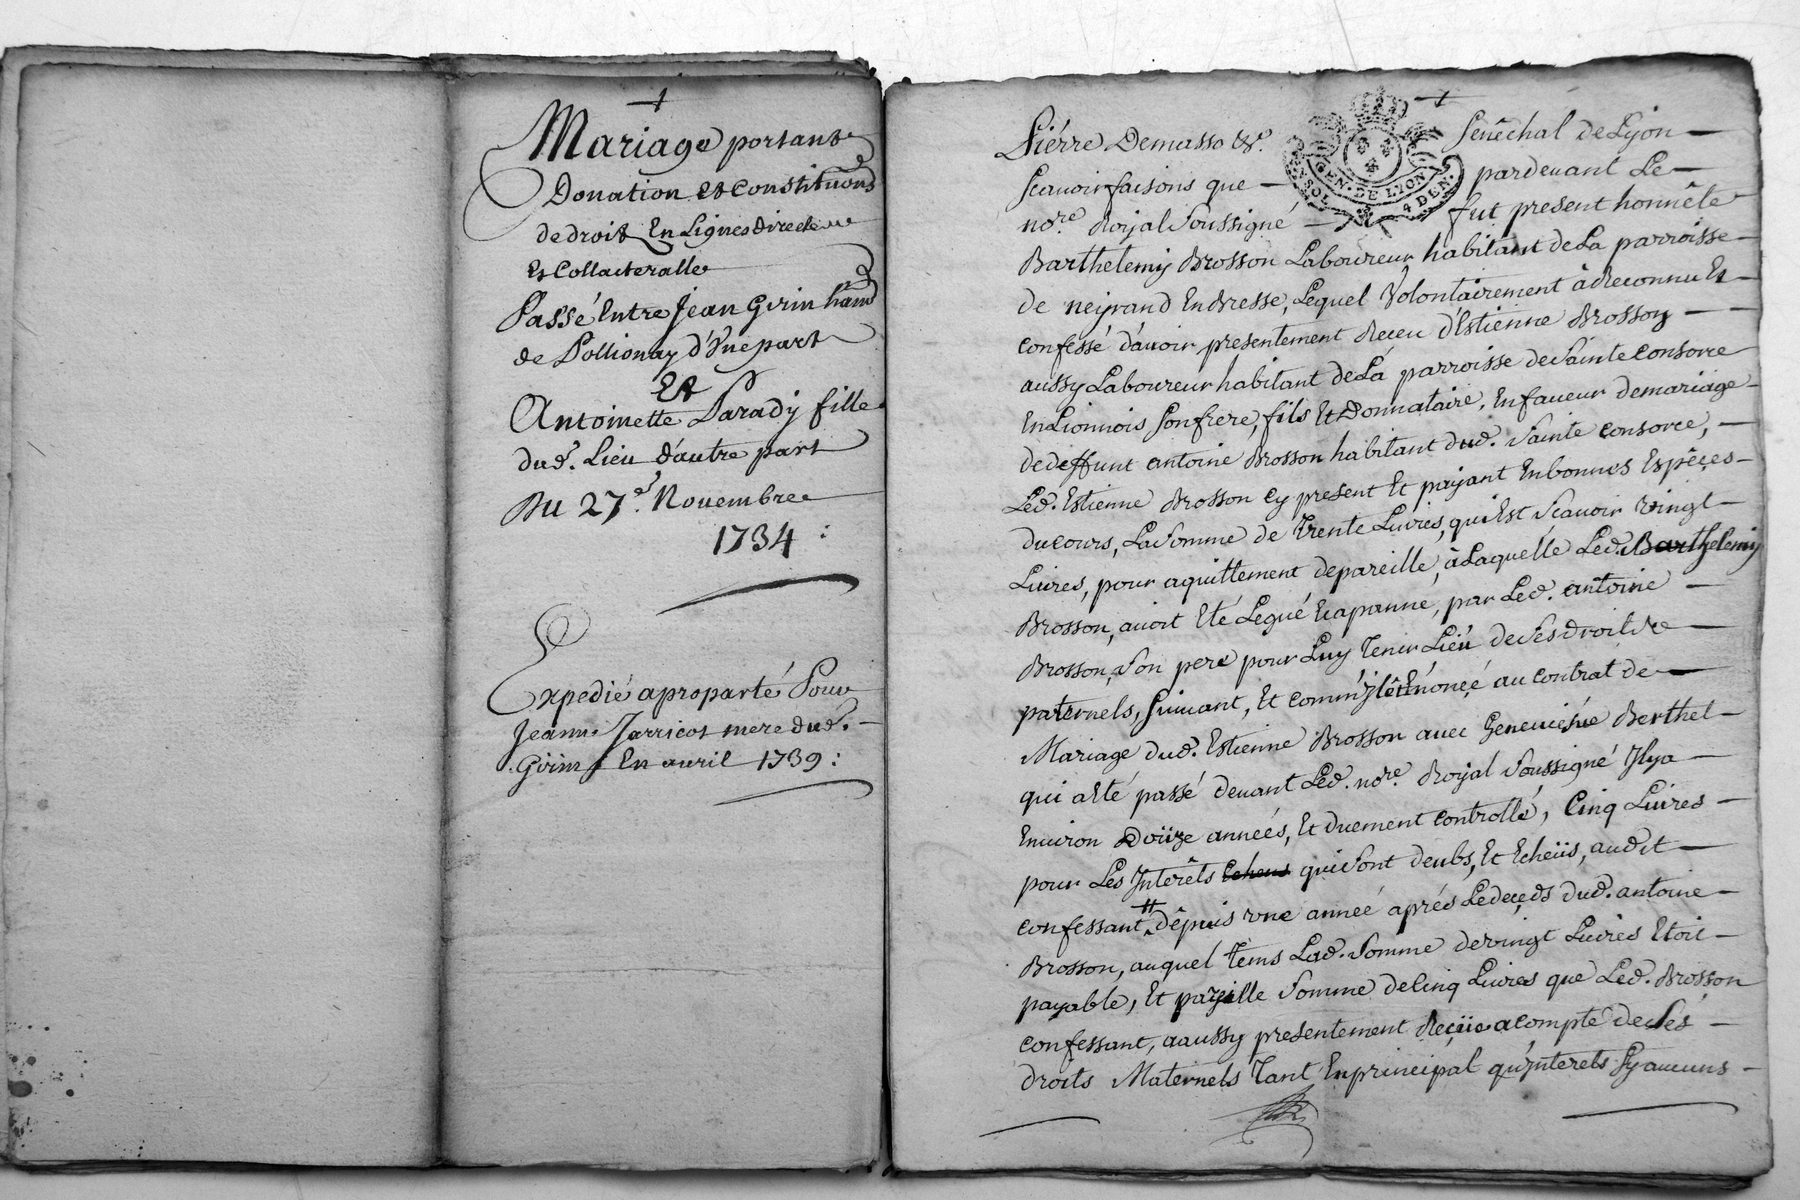 Mariage portant
Donation et Constitutions
de droit En Lignes directe
Et Collatteralle
Passé Entre Jean Girin hant
de Pollionay d'Vne part
Et
Antoinette Parady fille
dud. Lieu d'autre part
Du 27e. Novembre
1734 :
Expedié a proparté Pour
Jeanne Jarricot mere dud.
Girin En avril 1739 :
Piérre Demasso &c. Senêchal de Lyon
Scavoir faisons que pardevant Le
nore. Royal Soussigné fut present honnête
GEN. DE LYON
4 DEN.
Barthelemy Brosson Laboureur habitant de La parroisse
de neyrand En Bresse, Lequel Volontairement à Reconnu Et
confessé d'avoir presentement Receu d'Estienne Brosson
aussy Laboureur habitant de La parroisse de Sainte Consorce
En Lionnois Son frere, fils Et Donnataire, En faveur de mariage
de deffunt antoine Brosson habitant dud. Sainte Consorce,
Led. Estienne Brosson cy present Et payant En bonnes Espêces
du cours, La Somme de Trente Livres, qui Est Scavoir vingt
Livres, pour aquittement de pareille, à Laquelle Led. Barthelemy
Brosson, avoit Eté Legué par Led. antoine
Brosson, Son pere pour Luy Tenir Lieu de Ses droits
paternels, Suivant, Et comm'jl êt Enoncé au contrat de
Mariage dud. Estienne Brosson avec Genevieve Berthel
qui a Eté passé devant Led. nore. Royal Soussigné Jl y a
Environ Doüze anneés, Et duement controllé, Cinq Livres
pour Les Jnterêts Echeus qui Sont deubs, Et Echeüs, audit
confessant Dêpuis vne anneé aprés Le deceds dud. antoine
Brosson, auquel tems Lad. Somme de vingt Livres Etoit
payable, Et pareille Somme de Cinq Livres que Led. Brosson
confessant, a aussy presentement Reçüe a compte de Sés
droits Maternels Tant En principal qu'jnterets Sy aucuns